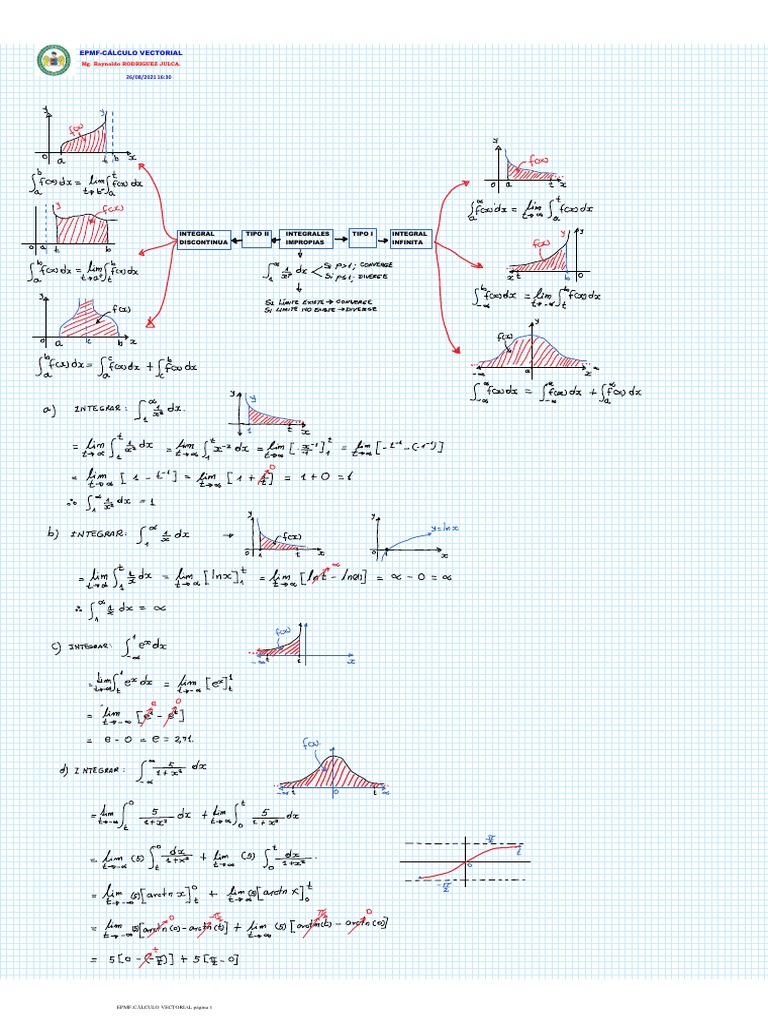 EPMF-CÁLCULO VECTORIAL
Mg. Raynaldo RODRIGUEZ JULCA.
26/08/2021 16:30
y f(x) 0 a t b x
∫_a^b f(x)dx = lim_{t→b⁻} ∫_a^t f(x)dx
y f(x) 0 a t b
∫_a^b f(x)dx = lim_{t→a⁺} ∫_t^b f(x)dx
y f(x) 0 a c b x
∫_a^b f(x)dx = ∫_a^c f(x)dx + ∫_c^b f(x)dx
INTEGRAL DISCONTINUA
TIPO II
INTEGRALES IMPROPIAS
TIPO I
INTEGRAL INFINITA
∫_1^∞ 1/x^p dx
Si p>1, CONVERGE
Si p≤1, DIVERGE
SI LÍMITE EXISTE → CONVERGE
SI LIMITE NO EXISTE → DIVERGE
y f(x) 0 a t x
∫_a^∞ f(x)dx = lim_{t→∞} ∫_a^t f(x)dx
y f(x) x t b
∫_{-∞}^b f(x)dx = lim_{t→-∞} ∫_t^b f(x)dx
y f(x) -∞ a x ∞
∫_{-∞}^∞ f(x)dx = ∫_{-∞}^a f(x)dx + ∫_a^∞ f(x)dx
a) INTEGRAR: ∫_1^∞ 1/x² dx.
y 1 t x
= lim_{t→∞} ∫_1^t 1/x² dx = lim_{t→∞} ∫_1^t x⁻² dx = lim_{t→∞} [-x⁻¹/1]_1^t = lim_{t→∞} [-t⁻¹-(-1⁻¹)]
= lim_{t→∞} [1 - t⁻¹] = lim_{t→∞} [1 + 1/t] 0 = 1+0 = 1
∴ ∫_1^∞ 1/x² dx = 1
b) INTEGRAR: ∫_1^∞ 1/x dx →
y f(x) 0 1 t x
y y=lnx 0 1 x
= lim_{t→∞} ∫_1^t 1/x dx = lim_{t→∞} [lnx]_1^t = lim_{t→∞} [lnt - ln(1)] ∞ = ∞ - 0 = ∞
∴ ∫_1^∞ 1/x dx = ∞
c) INTEGRAR: ∫_{-∞}^1 eˣdx
f(x) -∞ t 1 x
= lim_{t→∞} ∫_t^1 eˣdx = lim_{t→-∞} [eˣ]_t^1
= lim_{t→-∞} [e¹ - eᵗ] e 0
= e - 0 = e = 2,71.
d) INTEGRAR: ∫_{-∞}^∞ 5/(1+x²) dx
f(x) -∞ t 0 t ∞
= lim_{t→-∞} ∫_t^0 5/(1+x²) dx + lim_{t→∞} ∫_0^t 5/(1+x²) dx
= lim_{t→-∞} (5) ∫_t^0 dx/(1+x²) + lim_{t→∞} (5) ∫_0^t dx/(1+x²).
π/2 t 0 -π/2
= lim_{t→-∞} (5)[arctn x]_t^0 + lim_{t→∞} (5)[arctn x]_0^t
= lim_{t→-∞} (5)[arctn(0) - arctn(t)] 0 -π/2 + lim_{t→∞} (5)[arctn(t) - arctn(0)] π/2 0
= 5[0 - (-π/2)] + 5[π/2 - 0]
EPMF-CÁLCULO VECTORIAL página 1